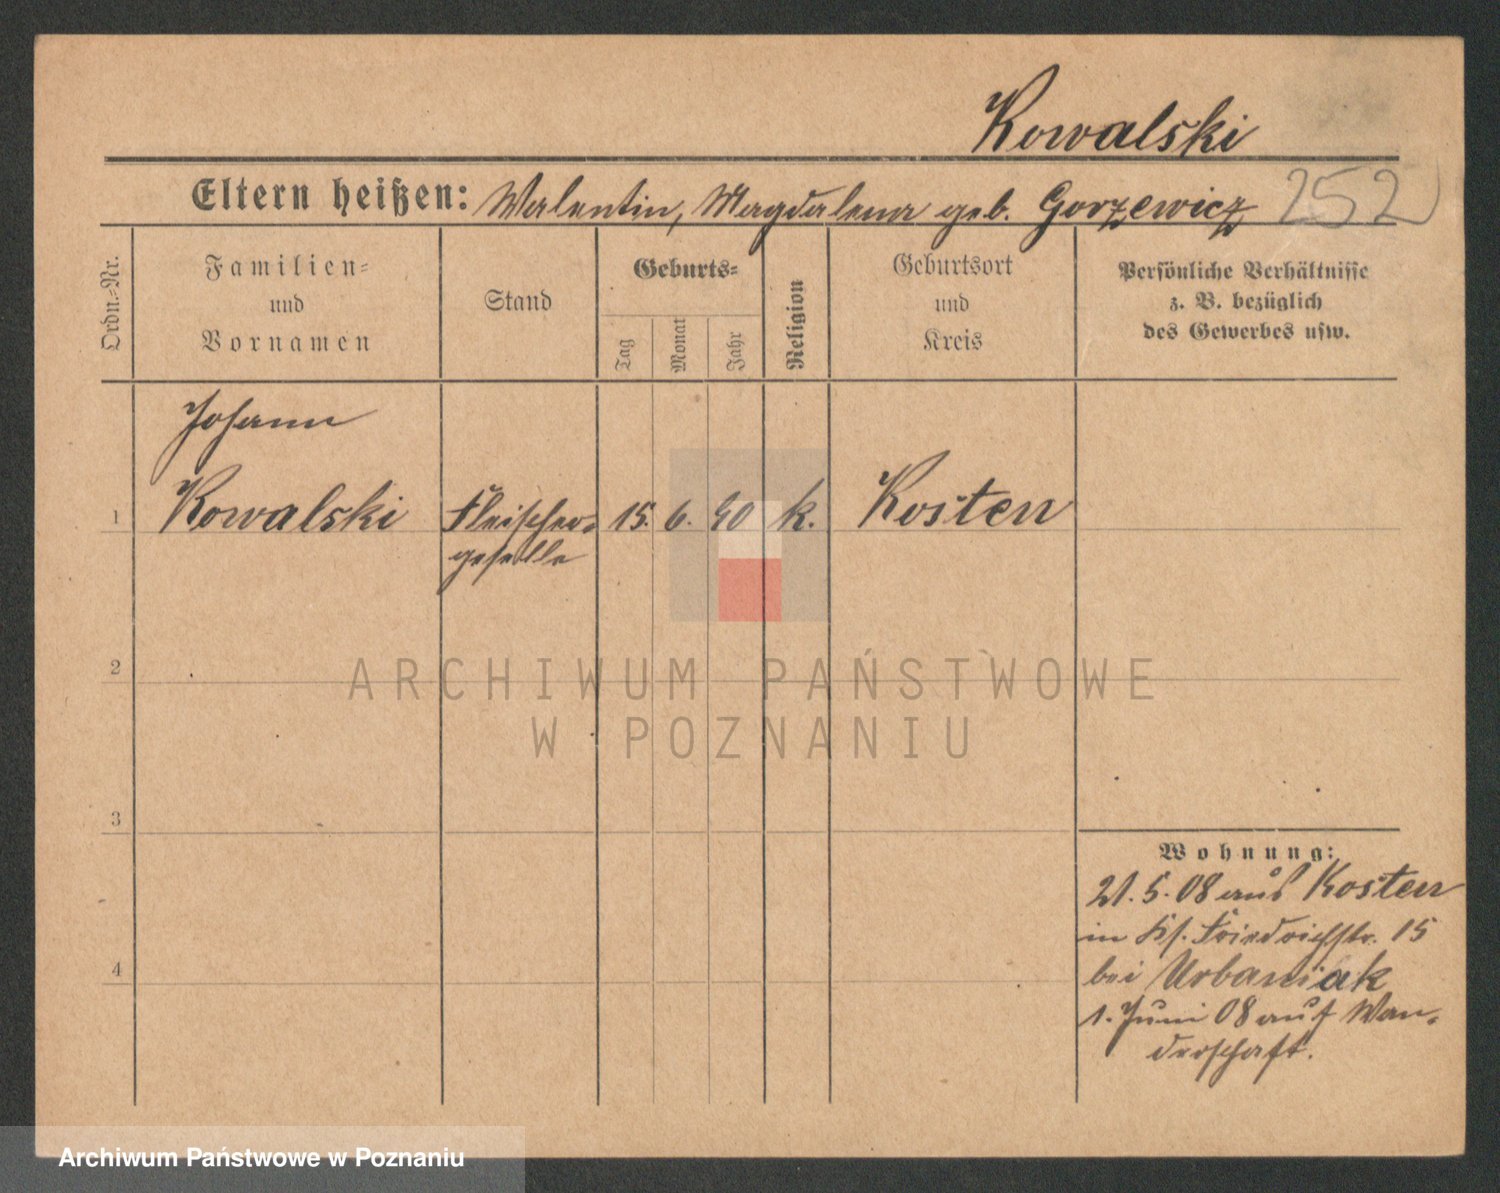 Kowalski
Eltern heißen: Walentin, Magdalena geb. Gorzewicz
252
Ordn.-Nr.
Familien-
und
Vornamen
Stand
Geburts-
Tag
Monat
Jahr
Religion
Geburtsort
und
Kreis
Persönliche Verhältnisse
z. B. bezüglich
des Gewerbes usw.
Johann
1 Kowalski Fleischer- 15. 6. 90 k. Kosten
geselle
2
ARCHIWUM PAŃSTWOWE
W POZNANIU
3
Wohnung:
21. 5. 08 aus Kosten
in Friedrichstr. 15
bei Urbaniak
4
1. Juni 08 auf Wan-
derschaft.
Archiwum Państwowe w Poznaniu